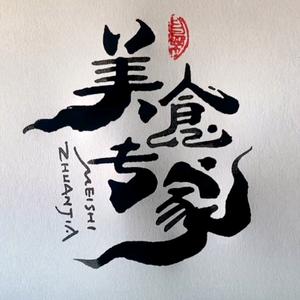 美食
专家
MEISHI
ZHUANJIA